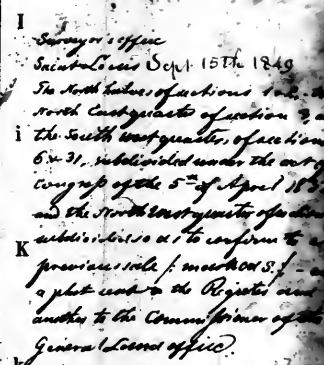 I
Surveyor's office
Saint Louis Sept. 15th 1849
The North halves of sections 1
North East quarter of section
i the South west quarter, of section
6 & 31, subdivided under the act of
Congress of the 5th of April 183
and the North west quarter of section
subdivided so as to conform to a
K
previous sale /: marked S :/ - a
a plat sent to the Register and
another to the Commissioner of the
General Land office.